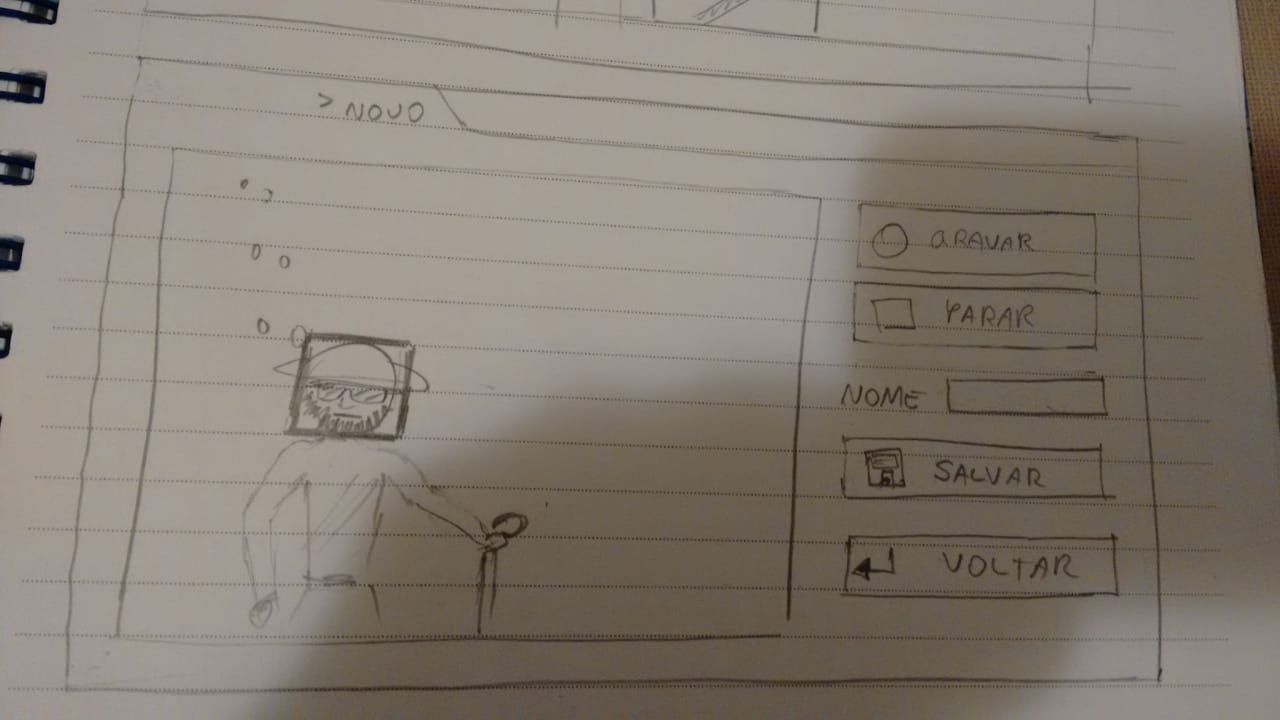 > NOVO
GRAVAR
PARAR
NOME
SALVAR
VOLTAR